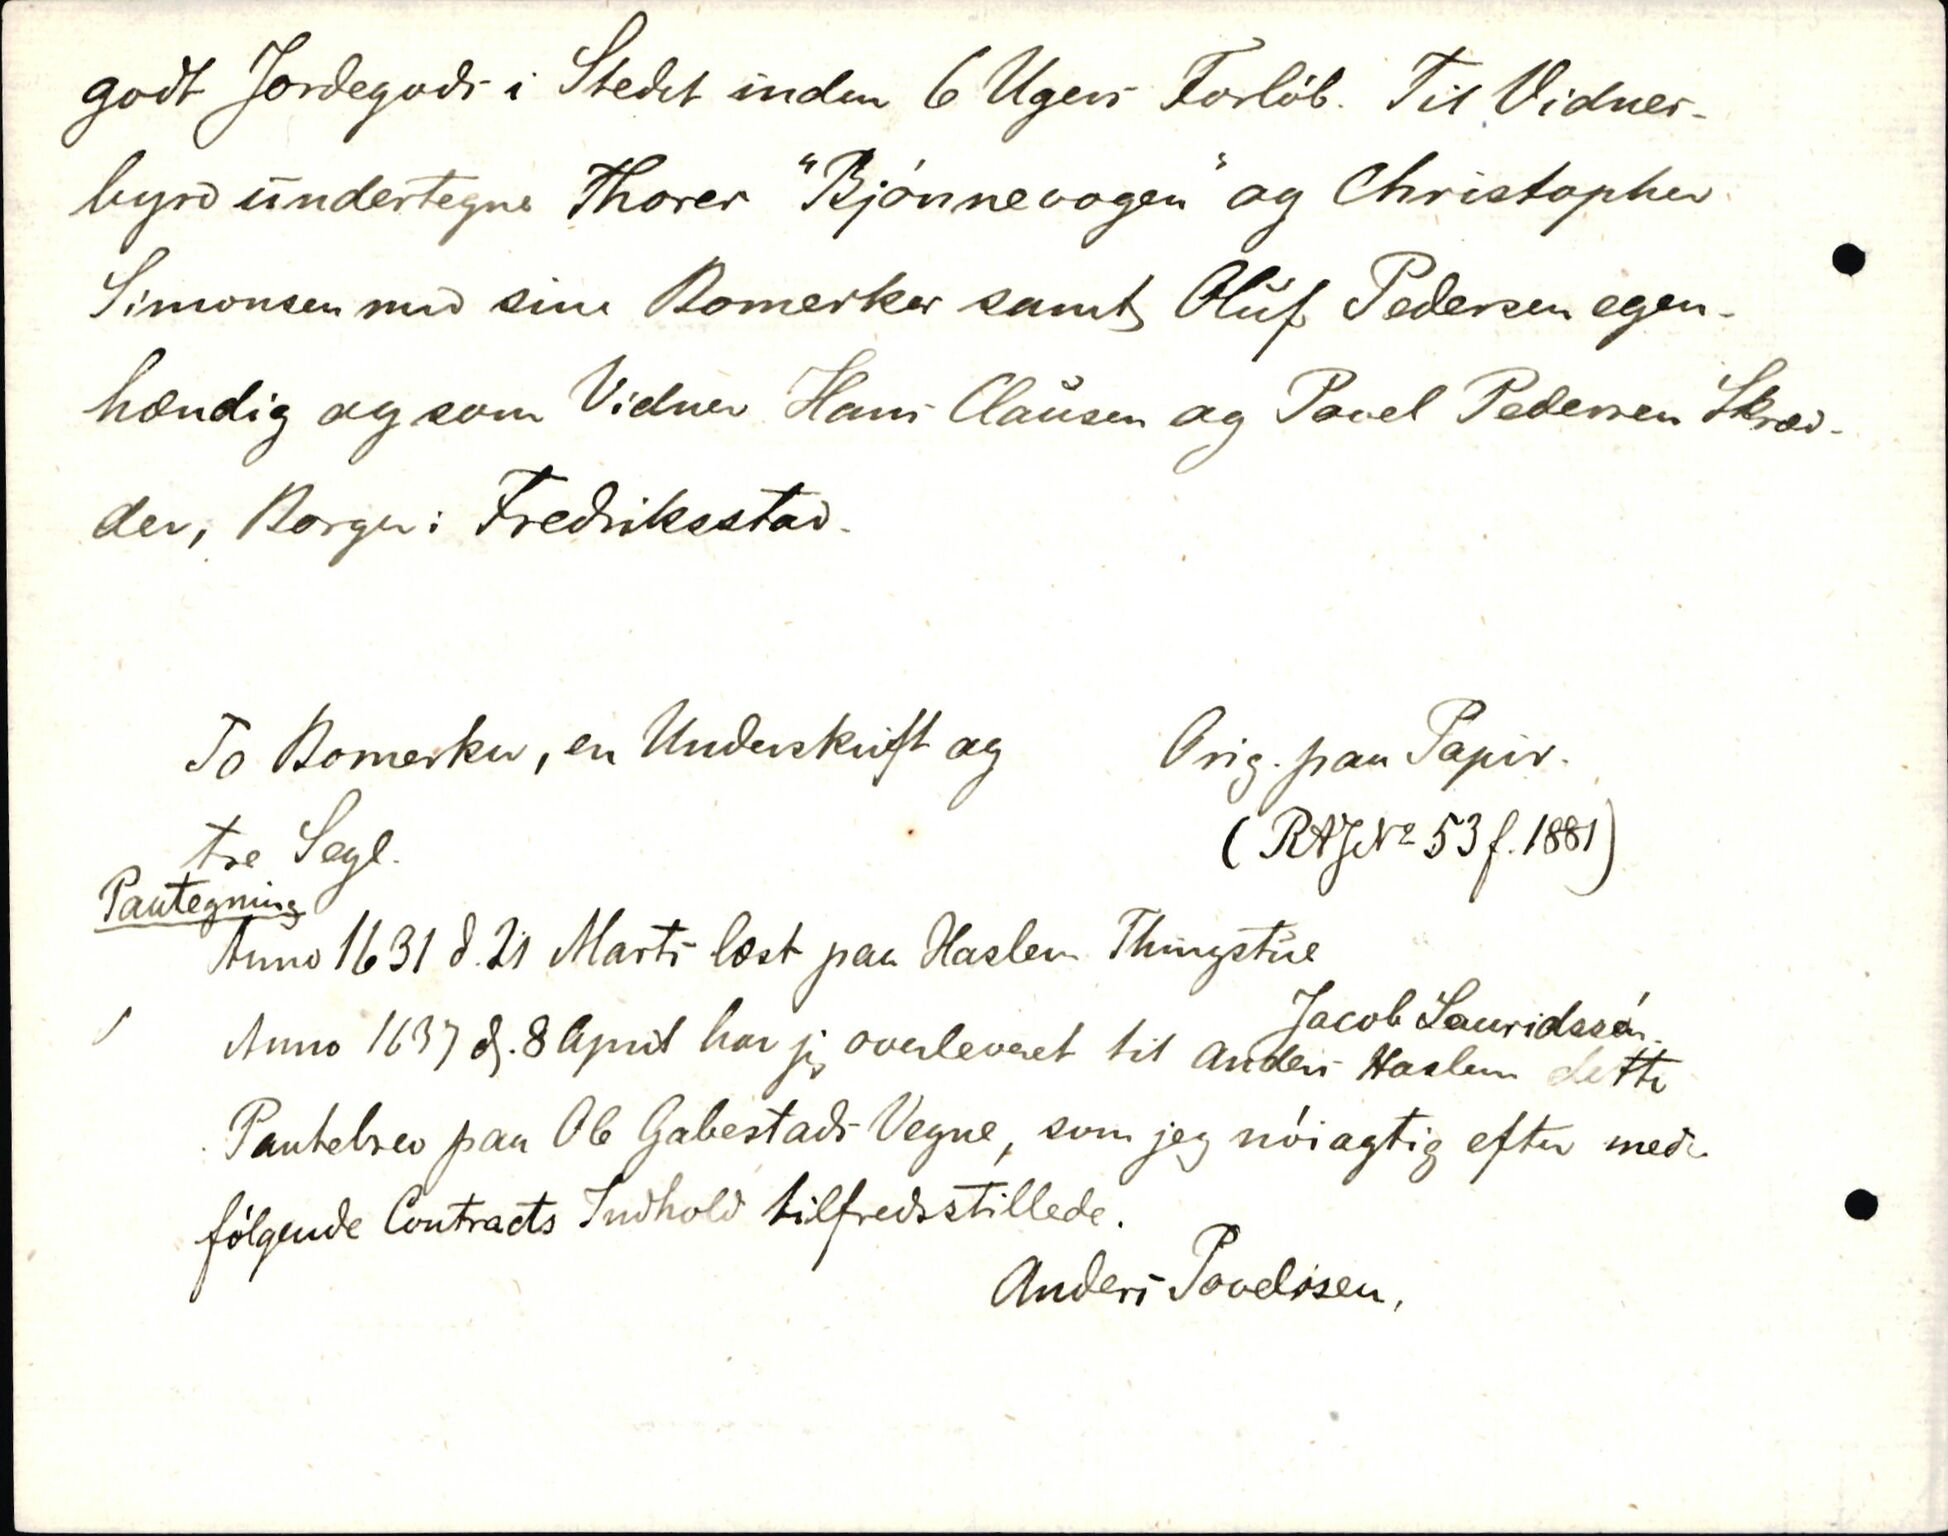 godt Jordegods i Stedet inden 6 Ugers Forløb. Til Vidner-
byrd undertegne Thorer "Bjønnevogen" og Christopher
Simonsen med sine Bomerker samt Oluf Pedersen egen-
hændig og som Vidner Hans Clausen og Povel Pedersen Skræd-
der, Borger i Fredriksstad.
To Bomerker, en Underskrift og
tre Segl.
Orig. paa Papir.
(RAJNo 53 f. 1881)
Paategning
Anno 1631 d. 21 Marts læst paa Haslem Thingstue
Anno 1637 d. 8 April har jeg overleveret til Anders Haslem dette
Jacob Lauridssøn
Pantebrev paa Ole Gabestads Vegne, som jeg nøiagtig efter med-
følgende Contracts Indhold tilfredsstillede.
Anders Povelssen,